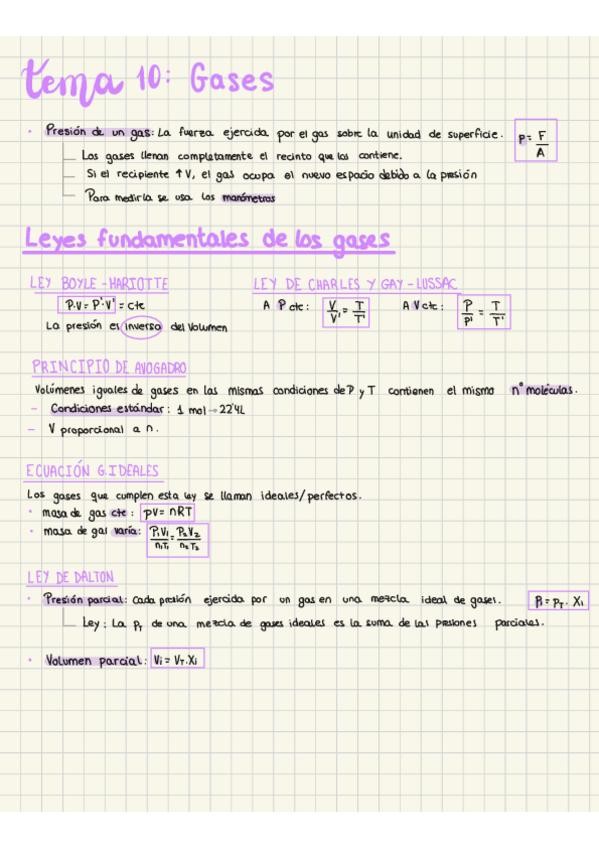 tema 10: Gases
• Presión de un gas: La fuerza ejercida por el gas sobre la unidad de superficie. p = F/A
Los gases llenan completamente el recinto que los contiene.
Si el recipiente ↑V, el gas ocupa el nuevo espacio debido a la presión
Para medirla se usa los manómetros
Leyes fundamentales de los gases
LEY BOYLE-MARIOTTE
P·V = P'·V' = cte
La presión es inverso del Volumen
LEY DE CHARLES Y GAY-LUSSAC
A P cte: V/V' = T/T' A V cte: P/P' = T/T'
PRINCIPIO DE AVOGADRO
Volúmenes iguales de gases en las mismas condiciones de P y T contienen el mismo nº moléculas.
– Condiciones estándar: 1 mol → 22'4L
– V proporcional a n.
ECUACIÓN G.IDEALES
Los gases que cumplen esta ley se llaman ideales/perfectos.
• masa de gas cte: pV = nRT
• masa de gas varía: P₁V₁/n₁T₁ = P₂V₂/n₂T₂
LEY DE DALTON
• Presión parcial: Cada presión ejercida por un gas en una mezcla ideal de gases. Pi = pT · Xi
Ley: La pT de una mezcla de gases ideales es la suma de las presiones parciales.
• Volumen parcial: Vi = VT·Xi